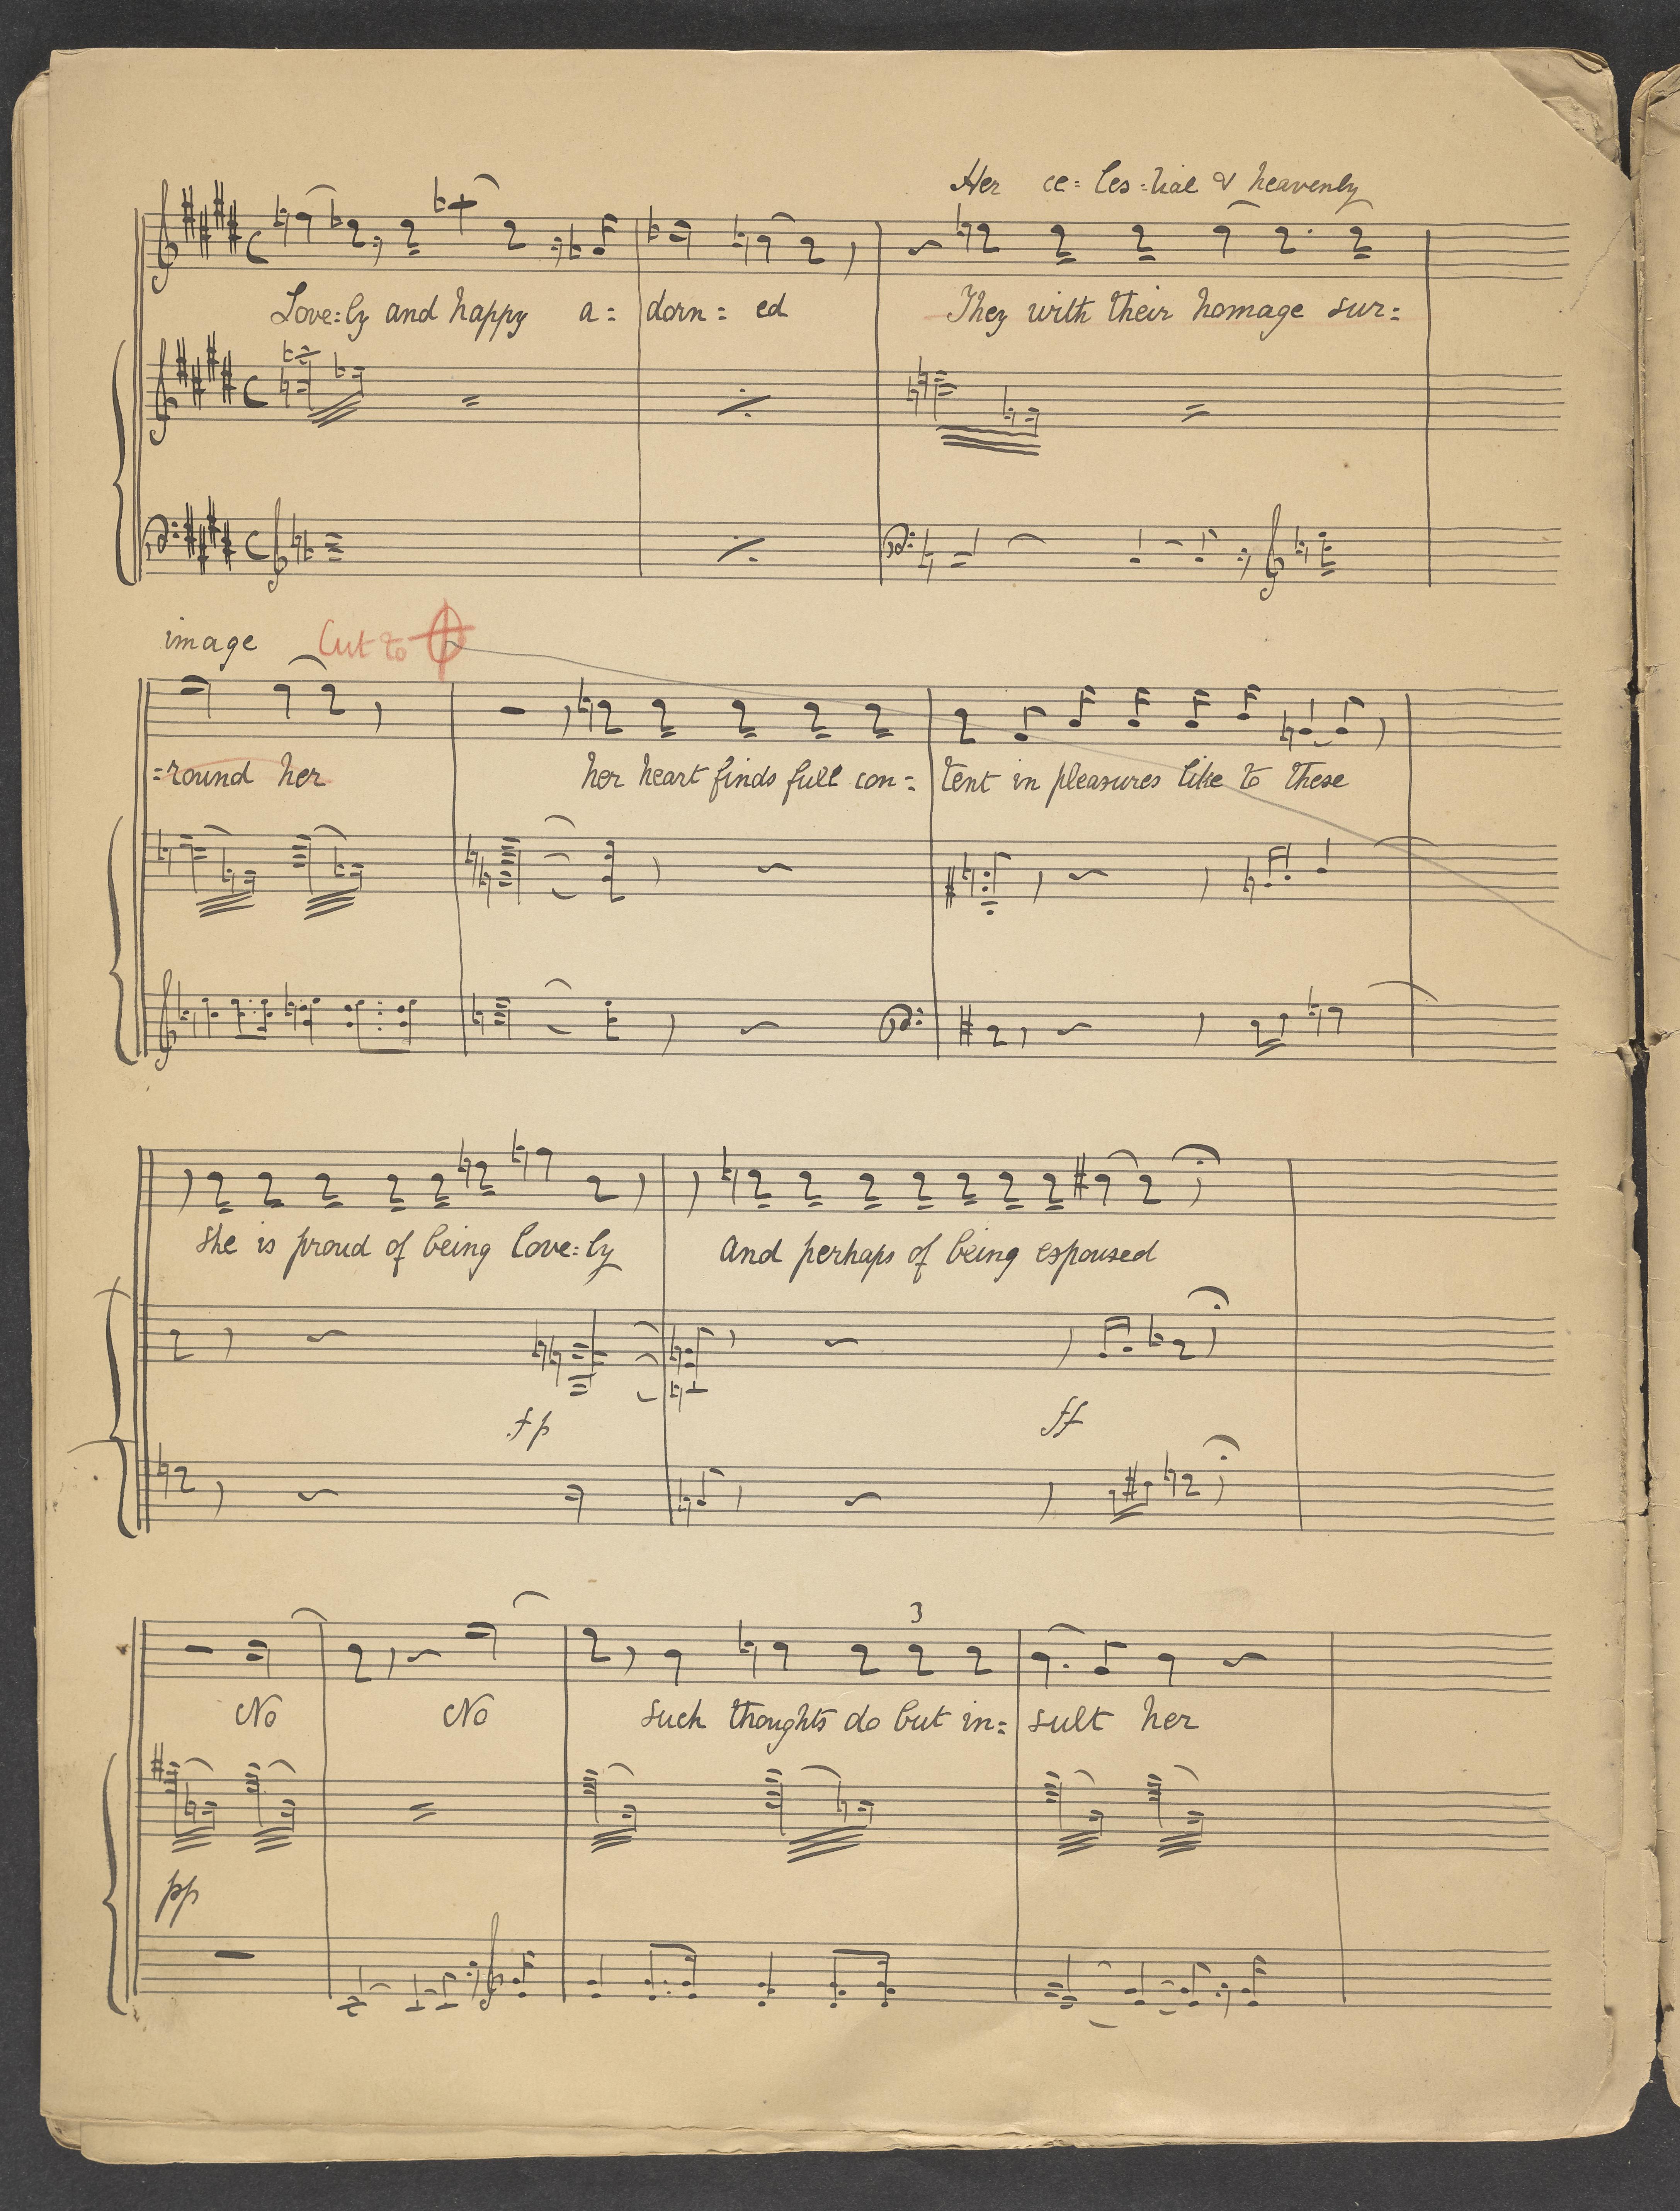 Her ce= les=tial & heavenly
Love=ly and happy a= dorn= ed They with their homage sur=
image Cut to
=round her her heart finds full con= tent in pleasures like to these
She is proud of being love=ly and perhaps of being espoused
fp ff
3
No No such thoughts do but in= sult her
pp